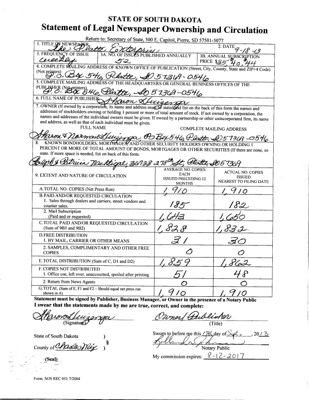 STATE OF SOUTH DAKOTA
Statement of Legal Newspaper Ownership and Circulation
Return to: Secretary of State, 500 E. Capitol, Pierre, SD 57501-5077
1. TITLE OF NEWSPAPER
The Platte Enterprise
2. DATE
9-18-13
3. FREQUENCY OF ISSUE
weekly
3A. NO. OF ISSUES PUBLISHED ANNUALLY
52
3B. ANNUAL SUBSCRIPTION PRICE
4. COMPLETE MAILING ADDRESS OF KNOWN OFFICE OF PUBLICATION (Street, City, County, State and ZIP+4 Code) (Not printers)
P.O. Box 546 Platte, SD 57369-0546
5. COMPLETE MAILING ADDRESS OF THE HEADQUARTERS OR GENERAL BUSINESS OFFICES OF THE PUBLISHER (Not printers)
P.O. Box 546 Platte, SD 57369-0546
6. FULL NAME OF PUBLISHER
Sharon Huizenga
7. OWNER (If owned by a corporation, its name and address must be stated
addresses of stockholders owning or holding 1 percent or more of total amount of stock. If not owned by a corporation, the
names and addresses of the individual owners must be given. If owned by a partnership or other unincorporated firm, its name
and address, as well as that of each individual must be given.
FULL NAME
COMPLETE MAILING ADDRESS
Sharon Huizenga PO Box 546 Platte SD 57369-0546
8. KNOWN BONDHOLDERS, MORTGAGEES AND OTHER SECURITY HOLDERS OWNING OR HOLDING 1
PERCENT OR MORE OF TOTAL AMOUNT OF BONDS, MORTGAGES OR OTHER SECURITIES (If there are none, so
state. If more space is needed, list on back of this form.
Platte SD 57369
9. EXTENT AND NATURE OF CIRCULATION
AVERAGE NO. COPIES EACH ISSUED PRECEDING 12 MONTHS
ACTUAL NO. COPIES ISSUED NEAREST TO FILING DATE
A. TOTAL NO. COPIES (Net Press Run)
1,910
1,910
B. PAID AND/OR REQUESTED CIRCULATION
1. Sales through dealers and carriers, street vendors and
counter sales.
185
182
2. Mail Subscription
(Paid and or requested)
1,643
1,650
C. TOTAL PAID AND/OR REQUESTED CIRCULATION
(Sum of 9B1 and 9B2)
1,828
1,832
D. FREE DISTRIBUTION
1. BY MAIL, CARRIER OR OTHER MEANS
31
30
2. SAMPLES, COMPLIMENTARY AND OTHER FREE
COPIES
0
0
E. TOTAL DISTRIBUTION (Sum of C, D1 and D2)
1,859
1,862
F. COPIES NOT DISTRIBUTED
1. Office use, left over, unaccounted, spoiled after printing
51
48
2. Return from News Agents
0
0
G. TOTAL (Sum of E, F1 and F2 - Should equal net press run
shown in A)
1,910
1,910
Statement must be signed by Publisher, Business Manager, or Owner in the presence of a Notary Public
I swear that the statements made by me are true, correct, and complete:
Sharon Huizenga
(Signature)
Owner/Publisher
(Title)
State of South Dakota )
County of Charles Mix )
(Seal)
Sworn to before me this 18 day of Sept., 2013
Notary Public
My commission expires: 9-12-2017
Form: SOS REC 051 7/2004